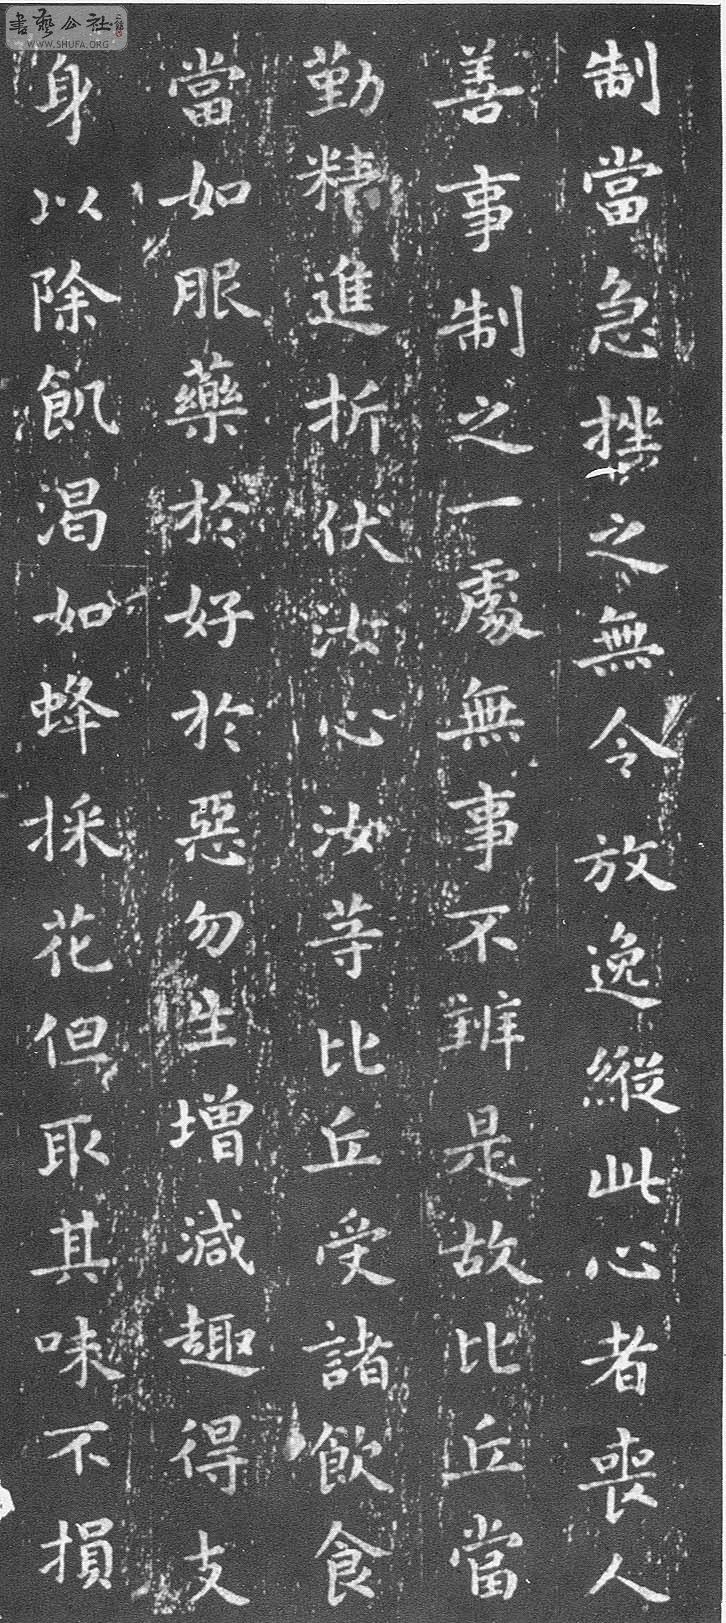 書藝公社
WWW.SHUFA.ORG
制當急挫之無令放逸縱此心者喪人
善事制之一處無事不辦是故比丘當
勤精進折伏汝心汝等比丘受諸飲食
當如服藥於好於惡勿生增減趣得支
身以除飢渴如蜂採花但取其味不損